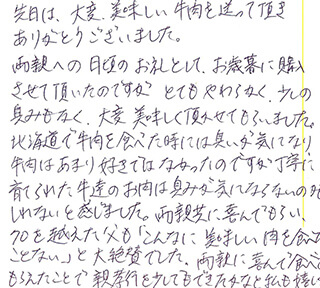 先日は、大変、美味しい牛肉を送って頂き
ありがとうございました。
両親への日頃のお礼として、お歳暮に購入
させて頂いたのですが とてもやわらく、少しの
臭みもなく、大変美味しく頂かせてもらいました。
北海道で牛肉を食べた時には臭いが気になり
牛肉はあまり好きではなかったのですが丁寧に
育てられた牛達のお肉は臭みが気にならないのかも
しれないと感じました。両親共に喜んでもらい、
70を越えた父も「こんなに美味しい肉を食べ
ことない。」と大絶賛でした。両親に喜んで食べ
もらえたことで親孝行を少しでもできたかなと私も嬉し